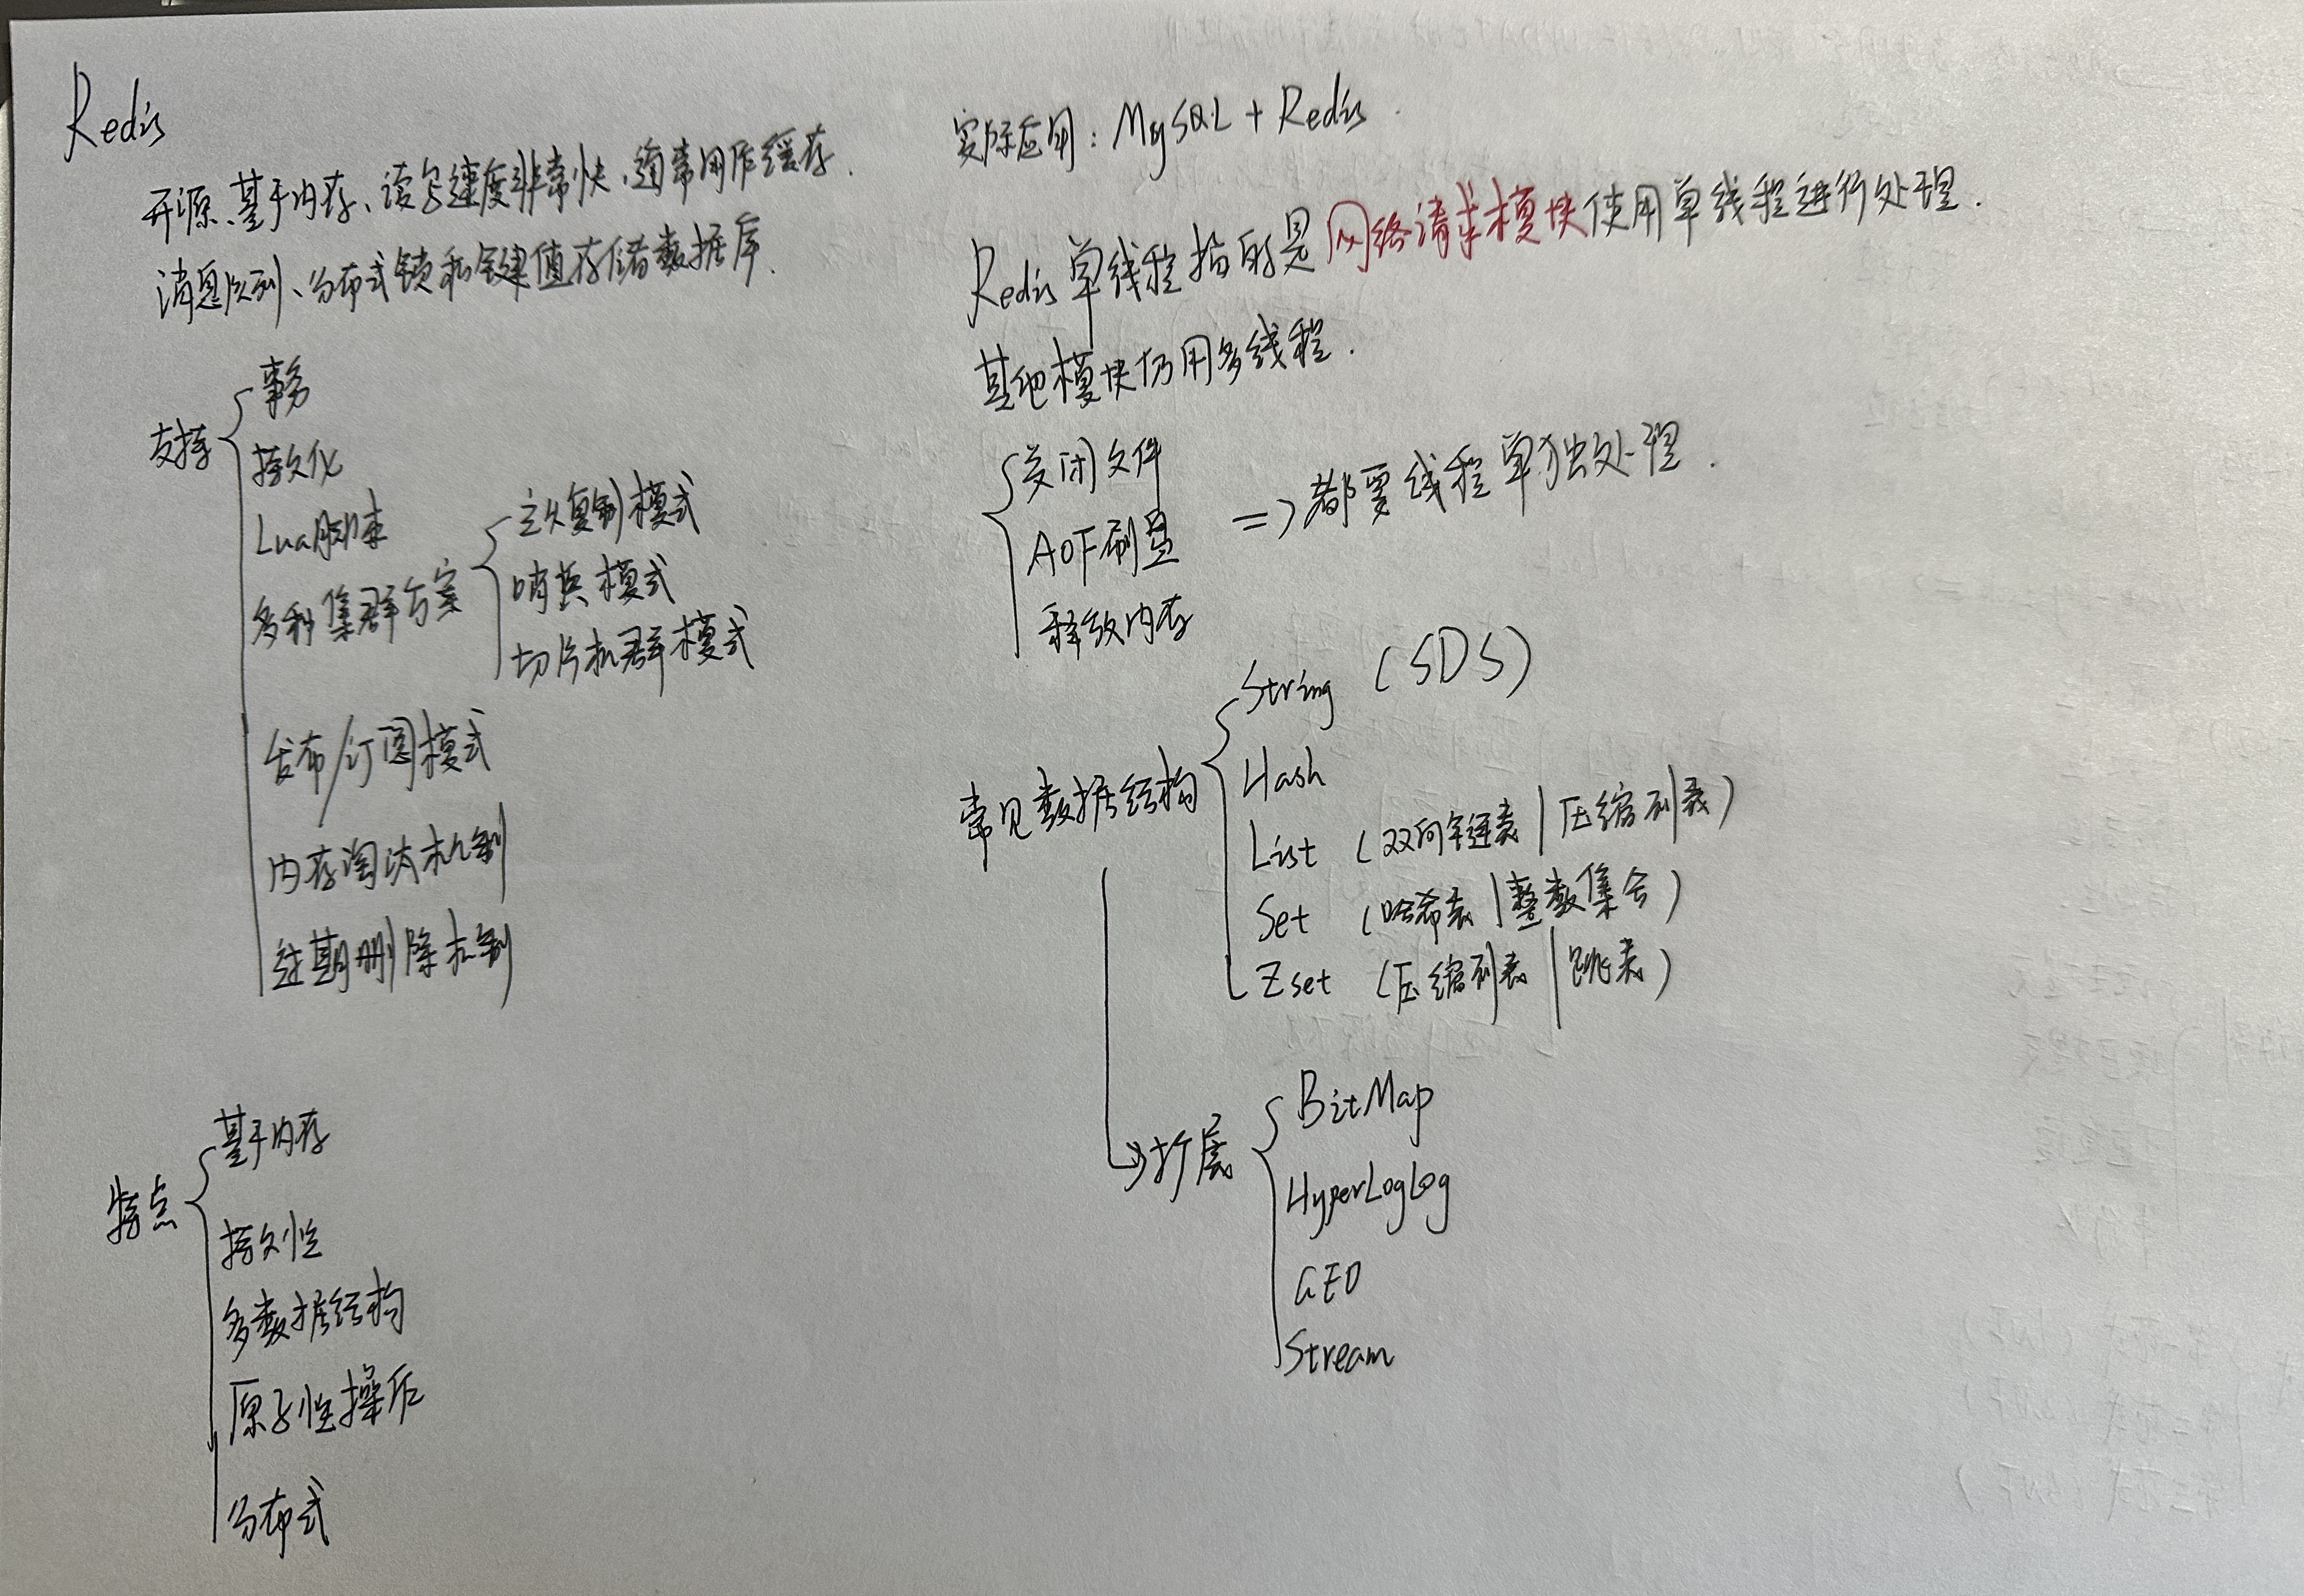 Redis
开源、基于内存、读写速度非常快,通常用作缓存.
消息队列、分布式锁和键值存储数据库.
支持
事务
持久化
Lua脚本
多种集群方案
主从复制模式
哨兵模式
切片机群模式
发布/订阅模式
内存淘汰机制
过期删除机制
特点
基于内存
持久性
多数据结构
原子性操作
分布式
实际应用:MySQL + Redis.
Redis单线程指的是网络请求模块使用单线程进行处理.
其他模块仍用多线程.
关闭文件
AOF刷盘
释放内存
=>都要线程单独处理.
常见数据结构
String (SDS)
Hash
List (双向链表|压缩列表)
Set (哈希表|整数集合)
Zset (压缩列表|跳表)
扩展
BitMap
HyperLogLog
GEO
Stream